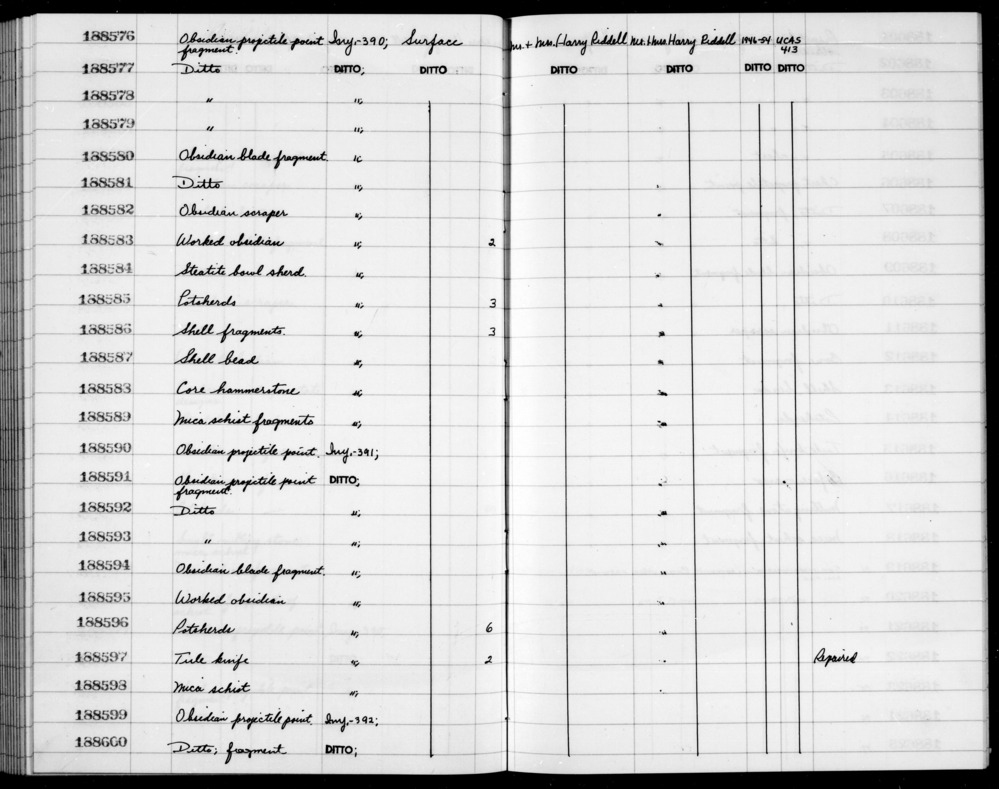 188576 Obsidian projectile point Iny.-390; Surface Mr. + Mrs. Harry Riddell Mr. + Mrs. Harry Riddell 1946-54 UCAS
fragment. 413
188577 Ditto DITTO; DITTO DITTO DITTO DITTO DITTO
188578 " ";
188579 " ";
188580 Obsidian blade fragment. "
188581 Ditto "; "
188582 Obsidian scraper "; "
188583 Worked obsidian "; 2 "
188584 Steatite bowl sherd. "; "
188585 Potsherds "; 3 "
188586 Shell fragments. "; 3 "
188587 Shell bead "; "
188588 Core hammerstone "; "
188589 Mica schist fragments "; "
188590 Obsidian projectile point. Iny.-391; "
188591 Obsidian projectile point DITTO; "
fragment.
188592 Ditto "; "
188593 " "; "
188594 Obsidian blade fragment. "; "
188595 Worked obsidian "; "
188596 Potsherds "; 6 "
188597 Tule knife "; 2 " Repaired
188598 Mica schist "; "
188599 Obsidian projectile point. Iny.-392;
188600 Ditto; fragment DITTO;